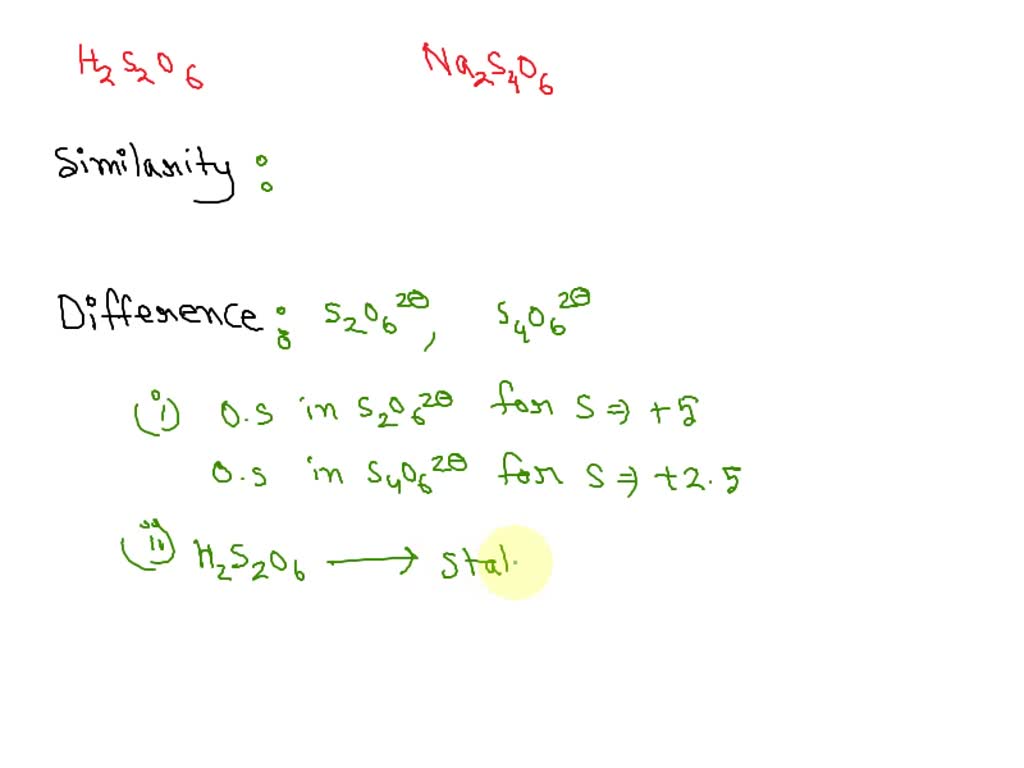 H₂S₂O₆ Na₂S₄O₆
Similarity :
Difference : S₂O₆²⊖, S₄O₆²⊖
(i) O.S in S₂O₆²⊖ for S ⇒ +5
O.S in S₄O₆²⊖ for S ⇒ +2.5
(ii) H₂S₂O₆ → Stal